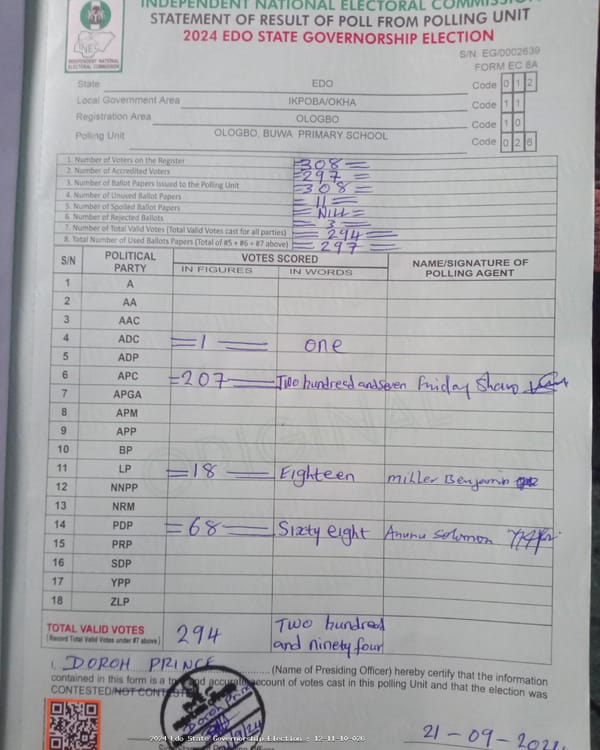 INDEPENDENT NATIONAL ELECTORAL COMMISSION
STATEMENT OF RESULT OF POLL FROM POLLING UNIT
2024 EDO STATE GOVERNORSHIP ELECTION
INEC
INDEPENDENT NATIONAL
ELECTORAL COMMISSION
S/N: EG/0002639
FORM EC 8A
State EDO Code 0 1 2
Local Government Area IKPOBA/OKHA Code 1 1
Registration Area OLOGBO Code 1 0
Polling Unit OLOGBO, BUWA PRIMARY SCHOOL Code 0 2 6
1. Number of Voters on the Register =308=
2. Number of Accredited Voters =297=
3. Number of Ballot Papers Issued to the Polling Unit =308=
4. Number of Unused Ballot Papers =11=
5. Number of Spoiled Ballot Papers =NIH=
6. Number of Rejected Ballots =3=
7. Number of Total Valid Votes (Total Valid Votes cast for all parties) =294=
8. Total Number of Used Ballots Papers (Total of #5 + #6 + #7 above) =297=
S/N POLITICAL PARTY VOTES SCORED NAME/SIGNATURE OF POLLING AGENT
IN FIGURES IN WORDS
1 A
2 AA
3 AAC
4 ADC =1= one
5 ADP
6 APC =207= Two hundred and seven Friday Sharo
7 APGA
8 APM
9 APP
10 BP
11 LP =18= Eighteen Miller Benjamin
12 NNPP
13 NRM
14 PDP =68= Sixty eight Anunu Solomon
15 PRP
16 SDP
17 YPP
18 ZLP
TOTAL VALID VOTES 294 Two hundred and ninety four
(Record Total Valid Votes under #7 above)
I, DOROH PRINCE (Name of Presiding Officer) hereby certify that the information
contained in this form is a and accurate account of votes cast in this polling Unit and that the election was
CONTESTED/NOT CONTESTED
2024 Edo State Governorship Election : 12-11-10-026
21-09-2024